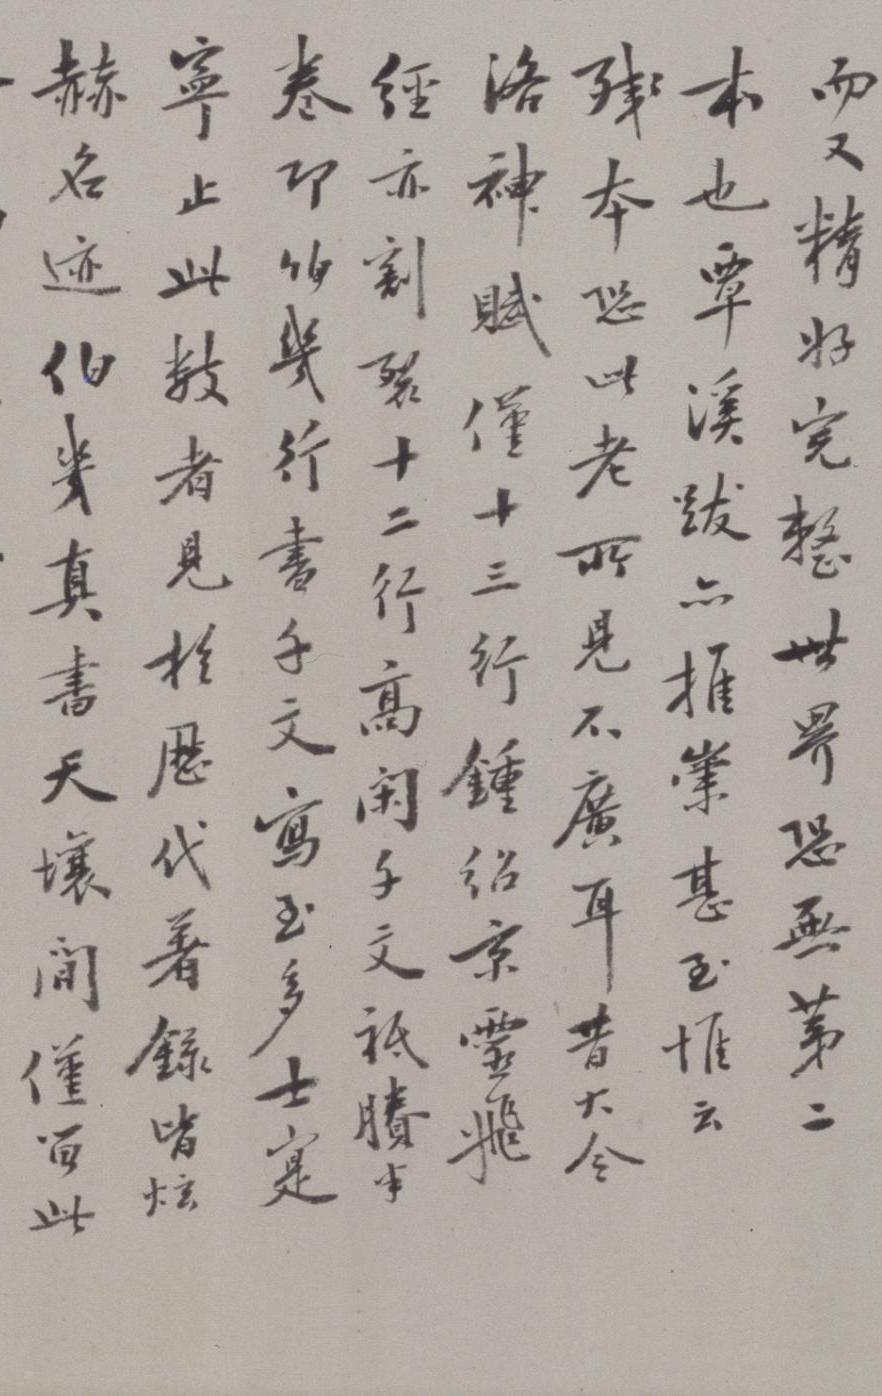 而又精好完整世界恐無第二
本也覃溪跋亦推崇甚至惟云
殘本恐此老所見不廣耳昔大令
洛神賦僅十三行鍾紹京靈飛
經亦割裂十二行高閑千文祇賸半
卷即伯幾行書千文寫至多士寔
寧止此數者見於歷代著錄皆炫
赫名迹伯幾真書天壤間僅留此